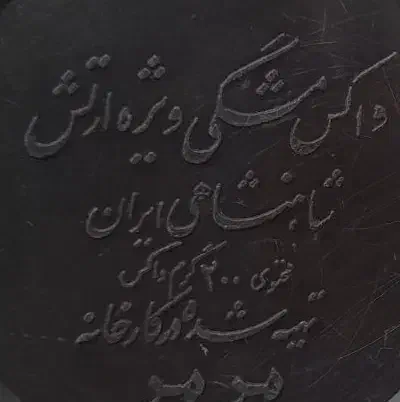 واکس مشگی ویژه ارتش
شاهنشاهی ایران
محتوی ۲۰۰ گرم واکس
تهیه شده در کارخانه